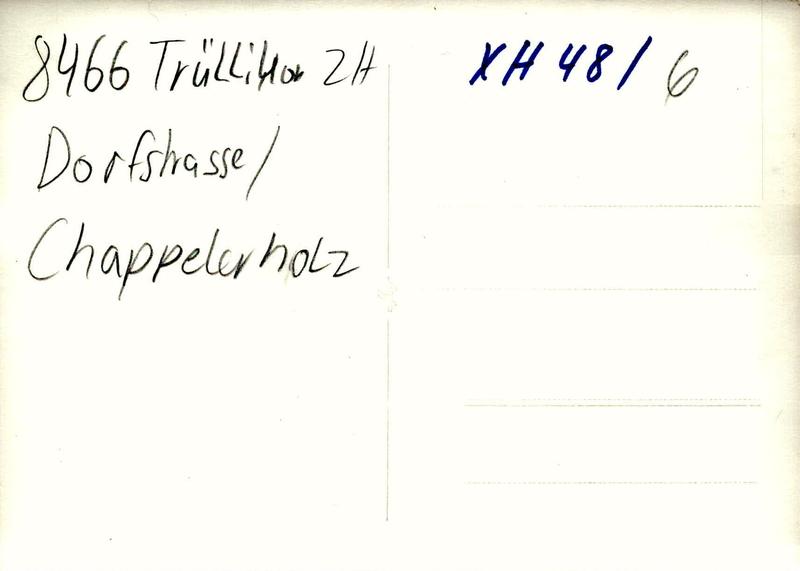 8466 Trüllikon ZH
Dorfstrasse/
Chappelerholz
XH 48/6